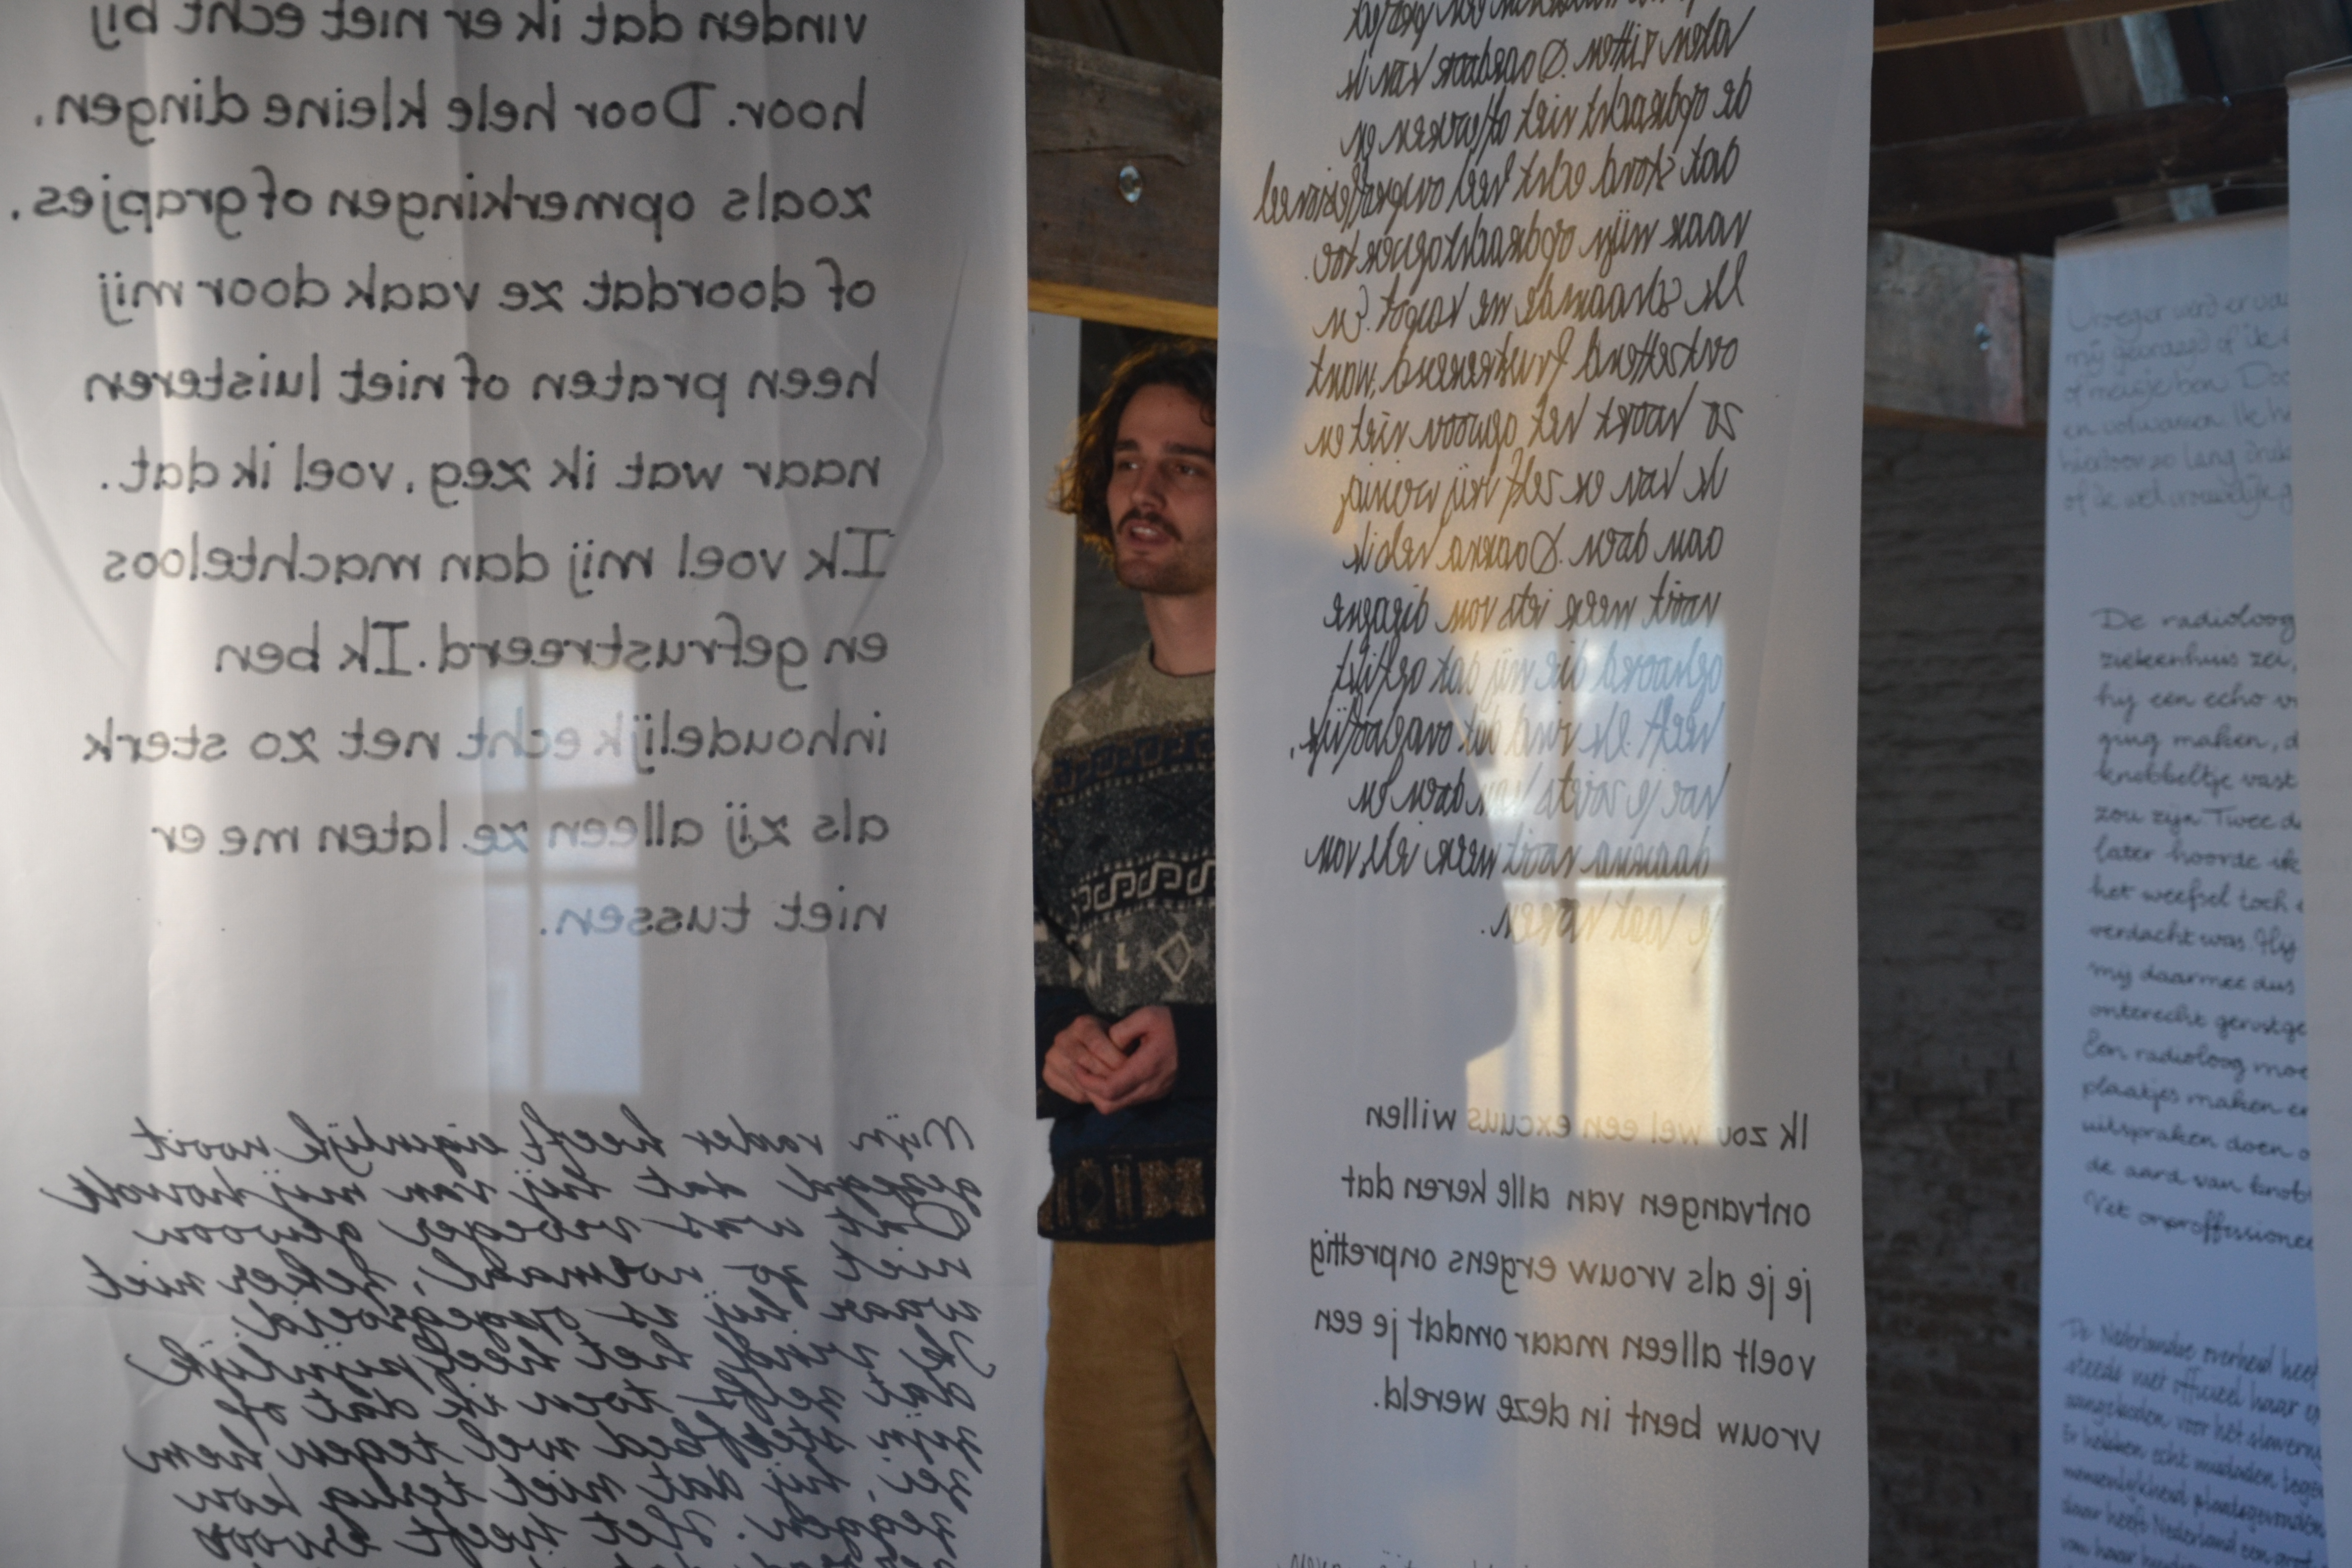 vinden dat ik er niet echt bij
hoor. Door hele kleine dingen,
zoals opmerkingen of grapjes,
of doordat ze vaak door mij
heen praten of niet luisteren
naar wat ik zeg, voel ik dat.
Ik voel mij dan machteloos
en gefrustreerd. Ik ben
inhoudelijk echt net zo sterk
als zij alleen ze laten me er
niet tussen.
Mijn vader heeft eigenlijk nooit
gezegd dat hij van mij houdt
Dat was vroeger gewoon
niet zo normaal, zeker niet
waar hij is opgegroeid.
Ik vind het heel pijnlijk
dat zelfs toen ik dat op
zijn sterfbed wel tegen hem
zei, hij dat niet terug kon
zeggen. Het heeft ervoor
vaker zitten. Daardoor kon ik
de opdracht niet afwerken en
dat stond echt heel onprofessioneel
naar mijn opdrachtgever toe.
Ik schaamde me kapot. En
ontzettend frustrerend, want
zo hoort het gewoon niet en
ik kan er zelf vrij weinig
aan doen. Daarna heb ik
nooit meer iets van diegene
gehoord die mij dat geflikt
heeft. Ik vind dit ongelooflijk,
hoe je zoiets kan doen en
daarna nooit meer iets van
je laat horen.
Ik zou wel een excuus willen
ontvangen van alle keren dat
je je als vrouw ergens onprettig
voelt alleen maar omdat je een
vrouw bent in deze wereld.
Vroeger werd er
mij gevraagd of ik
of meisje ben.
en volwassen. Ik
hierdoor zo lang
of ik wel vrouwelijk
De radioloog
ziekenhuis zei,
hij een echo
ging maken,
knobbeltje vast
zou zijn. Twee
later hoorde ik
het weefsel toch
verdacht was. Hij
mij daarmee dus
onterecht
Een radioloog
plaatjes maken
uitspraken doen
de aard van
Vet
De Nederlandse overheid heeft
steeds niet officieel haar
aangeboden voor het
Er hebben echt misdaden
menselijkheid plaatsgevonden
daar heeft Nederland een
van haar